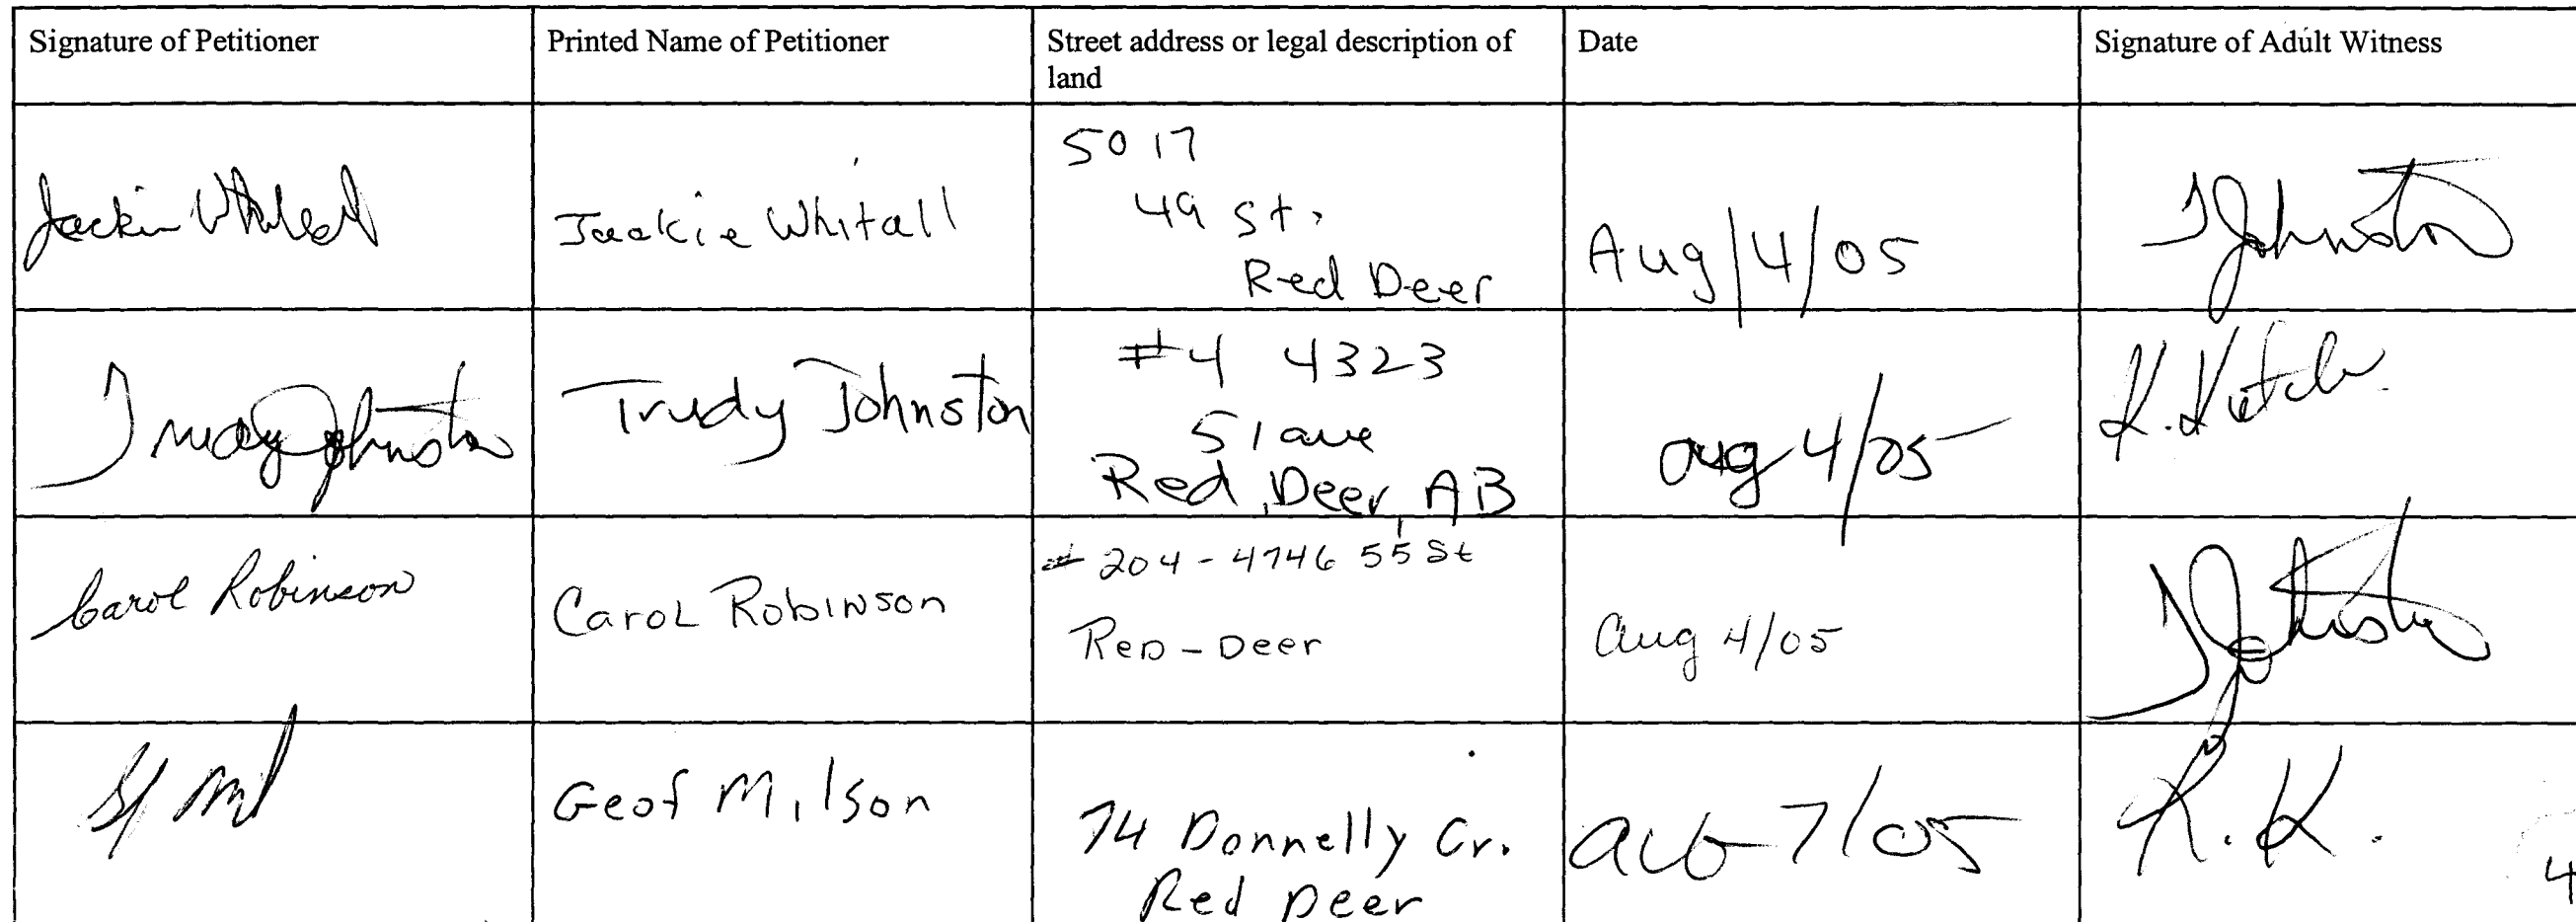 Signature of Petitioner
Printed Name of Petitioner
Street address or legal description of
land
Date
Signature of Adult Witness
Jackie Whitall
Jackie Whitall
5017
49 St.
Red Deer
Aug/4/05
TJohnston
Trudy Johnston
Trudy Johnston
#4 4323
51 ave
Red Deer, AB
aug 4/05
K.
Carol Robinson
Carol Robinson
# 204-4746 55 St
Red-Deer
Aug 4/05
TJohnston
Geof Milson
74 Donnelly Cr.
Red Deer
AUG 7/05
K. K.
4